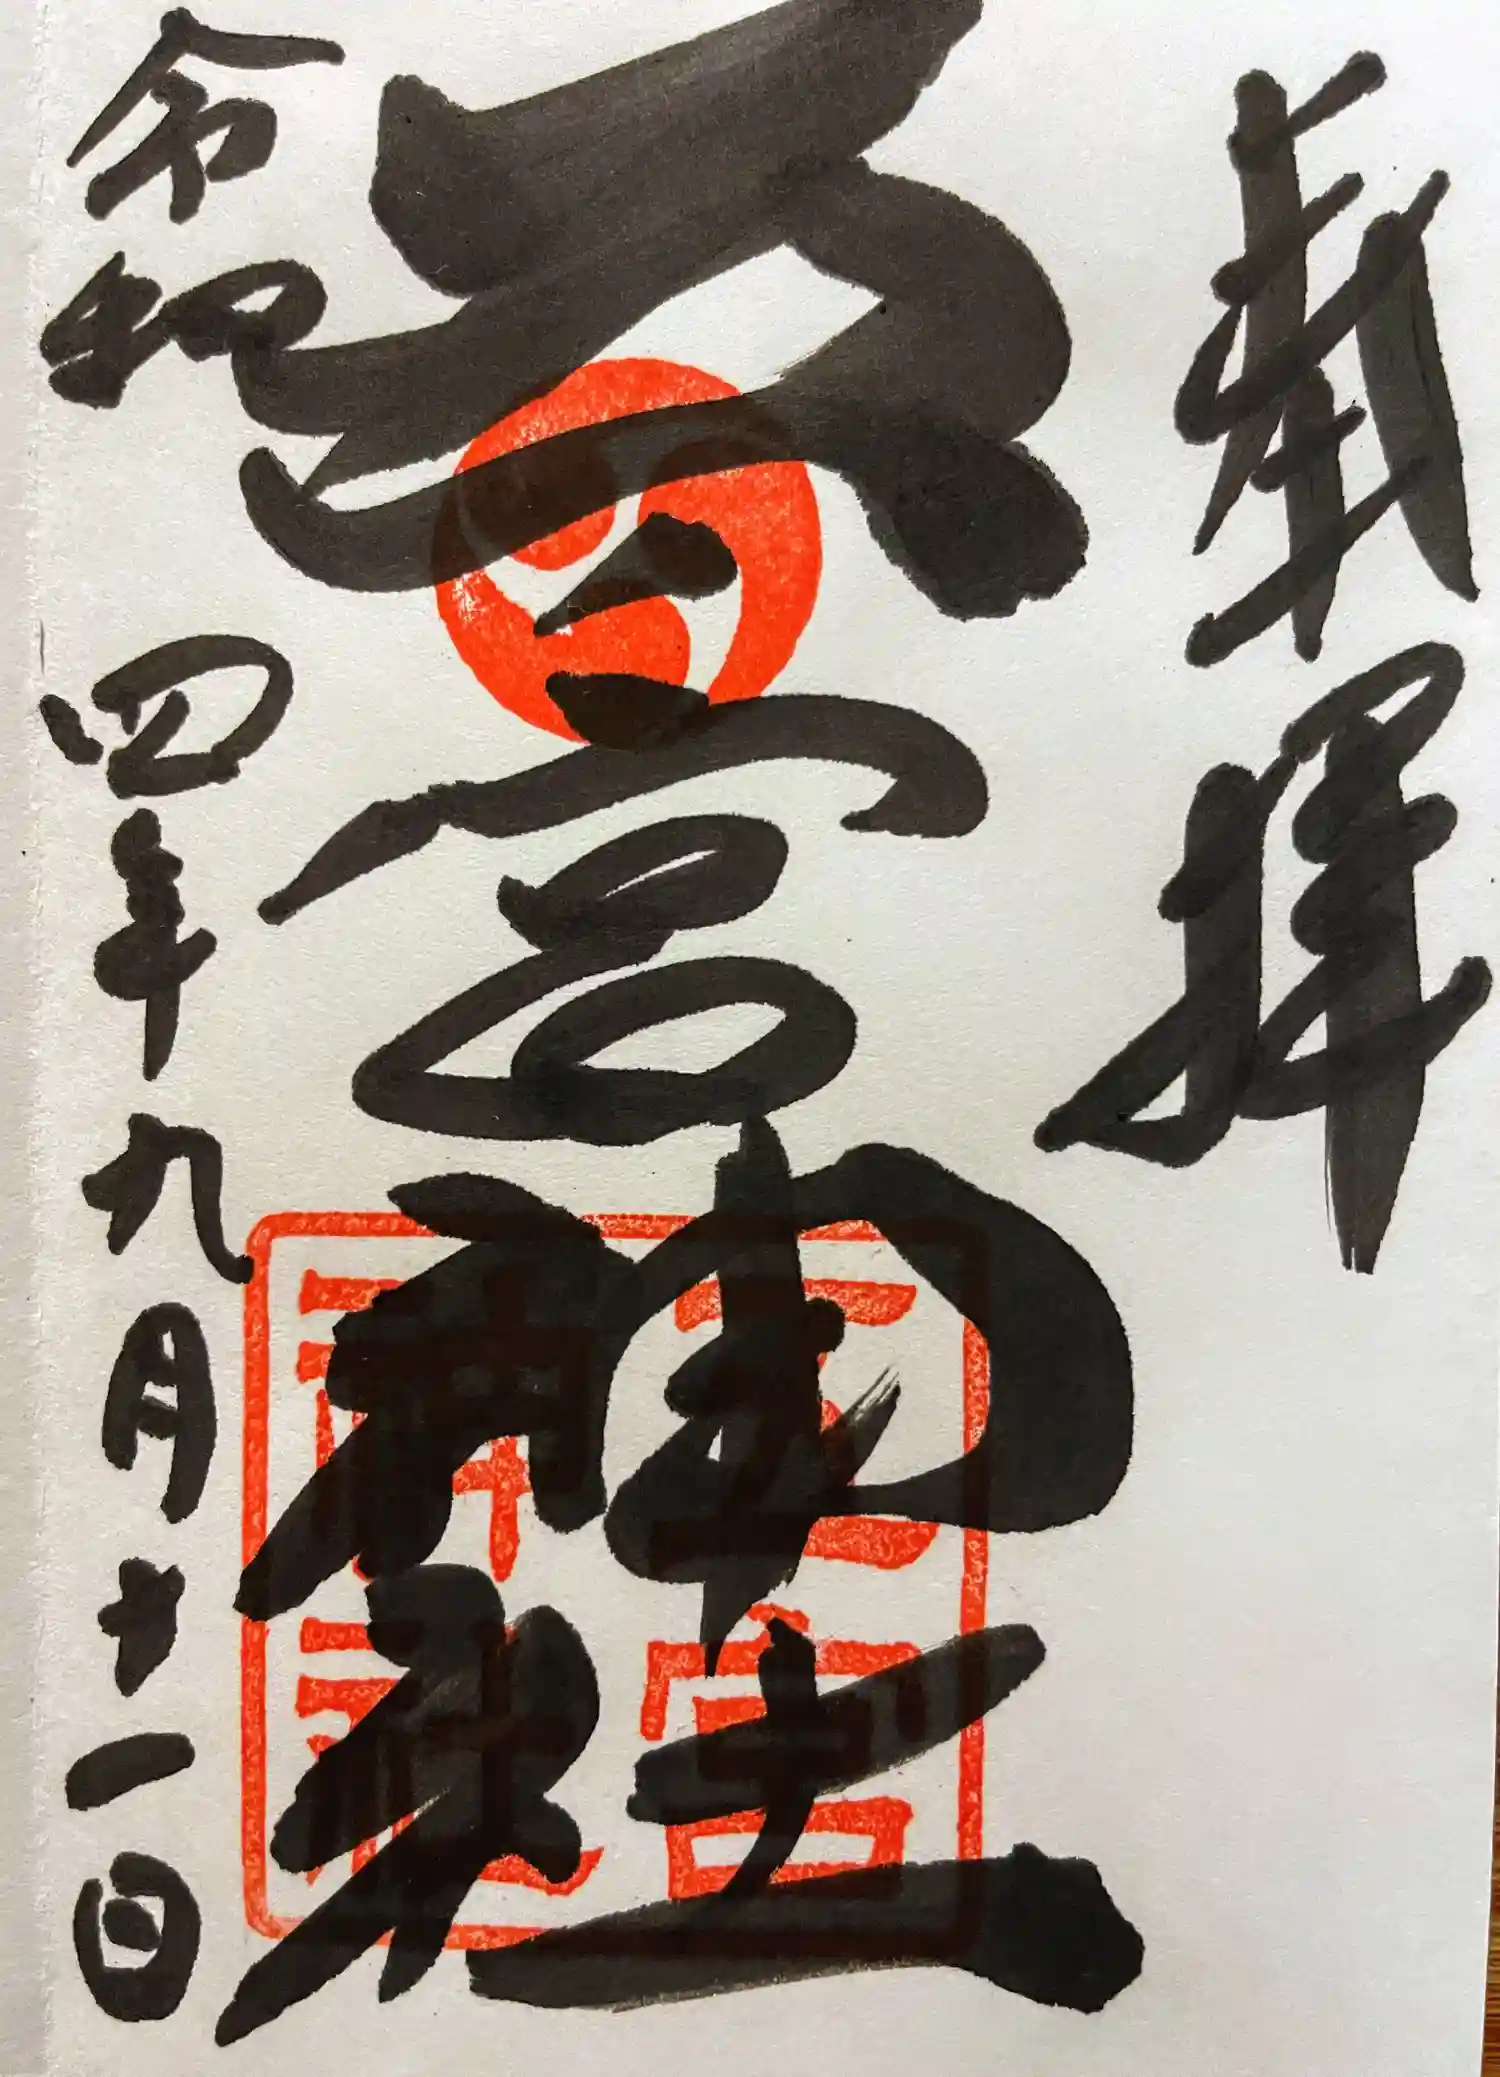 奉拝
五宮神社
五宮
神社
令和四年九月十一日